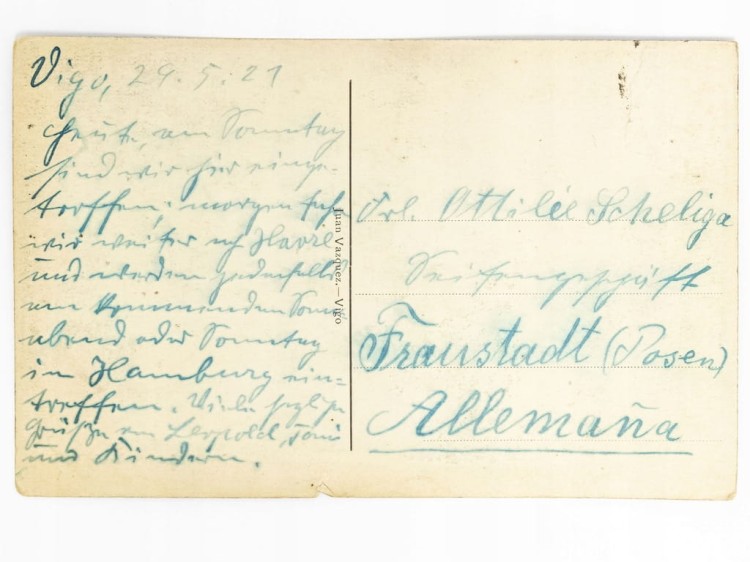 Vigo, 29.5.21
Heute, am Sonntag
sind wir hier einge-
troffen; morgen fah
wir weiter n/ Havre
und werden jedenfalls
am kommenden Sonn
abend oder Sonntag
in Hamburg ein-
treffen. Viele herzliche
Grüße an Leopold, Toni
und Kindern.
Juan Vazquez.—Vigo
Frl. Ottilie Scheliga
Seifengeschäft
Fraustadt (Posen)
Allemaña